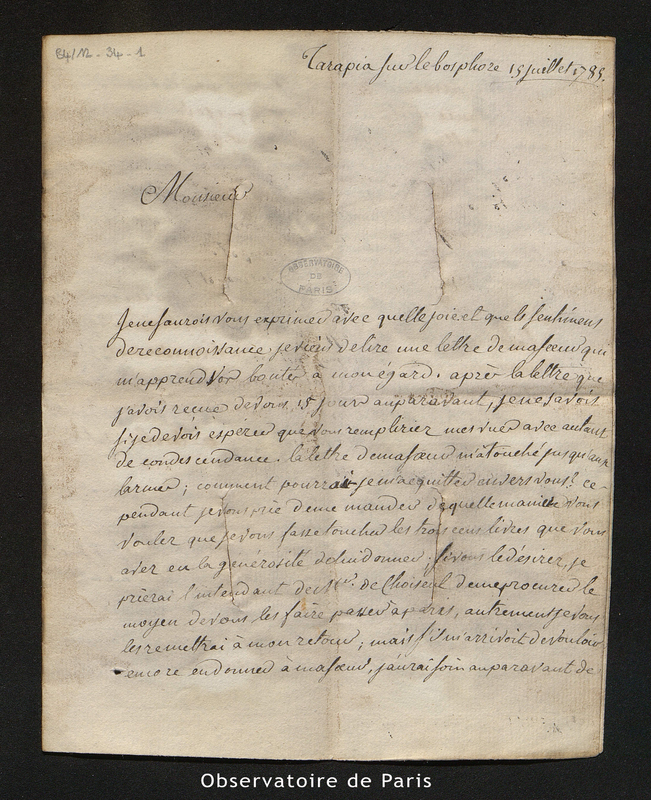 B4/12 - 34 - 1
Tarapia sur le bosphore 15 juillet 1785.
Monsieur
OBSERVATOIRE
DE
PARIS
Je ne saurois vous exprimer avec quelle joie et quels sentimens
de reconnoissance, je viens de lire une lettre de ma soeur qui
m'apprend vos bontés à mon égard. après la lettre que
j'avois recue de vous, 15 jours auparavant, je ne savois
si je devois esperer que vous rempliriez mes vues avec autant
de condescendance. la lettre de ma soeur m'a touché jusqu'aux
larmes; comment pourrai je m'acquitter envers vous? ce-
pendant je vous prie de me mander de quelle maniere vous
voulez que je vous fasse toucher les trois cens livres que vous
avez eu la générosité de lui donner. si vous le désirez, je
prierai l'intendant de Mr. de Choiseul de me procurer le
moyen de vous les faire passer a paris, autrement je vous
les remettrai à mon retour; mais s'il m'arrivoit de vouloir
encore en donner à ma soeur, j'aurai soin auparavant de
Observatoire de Paris